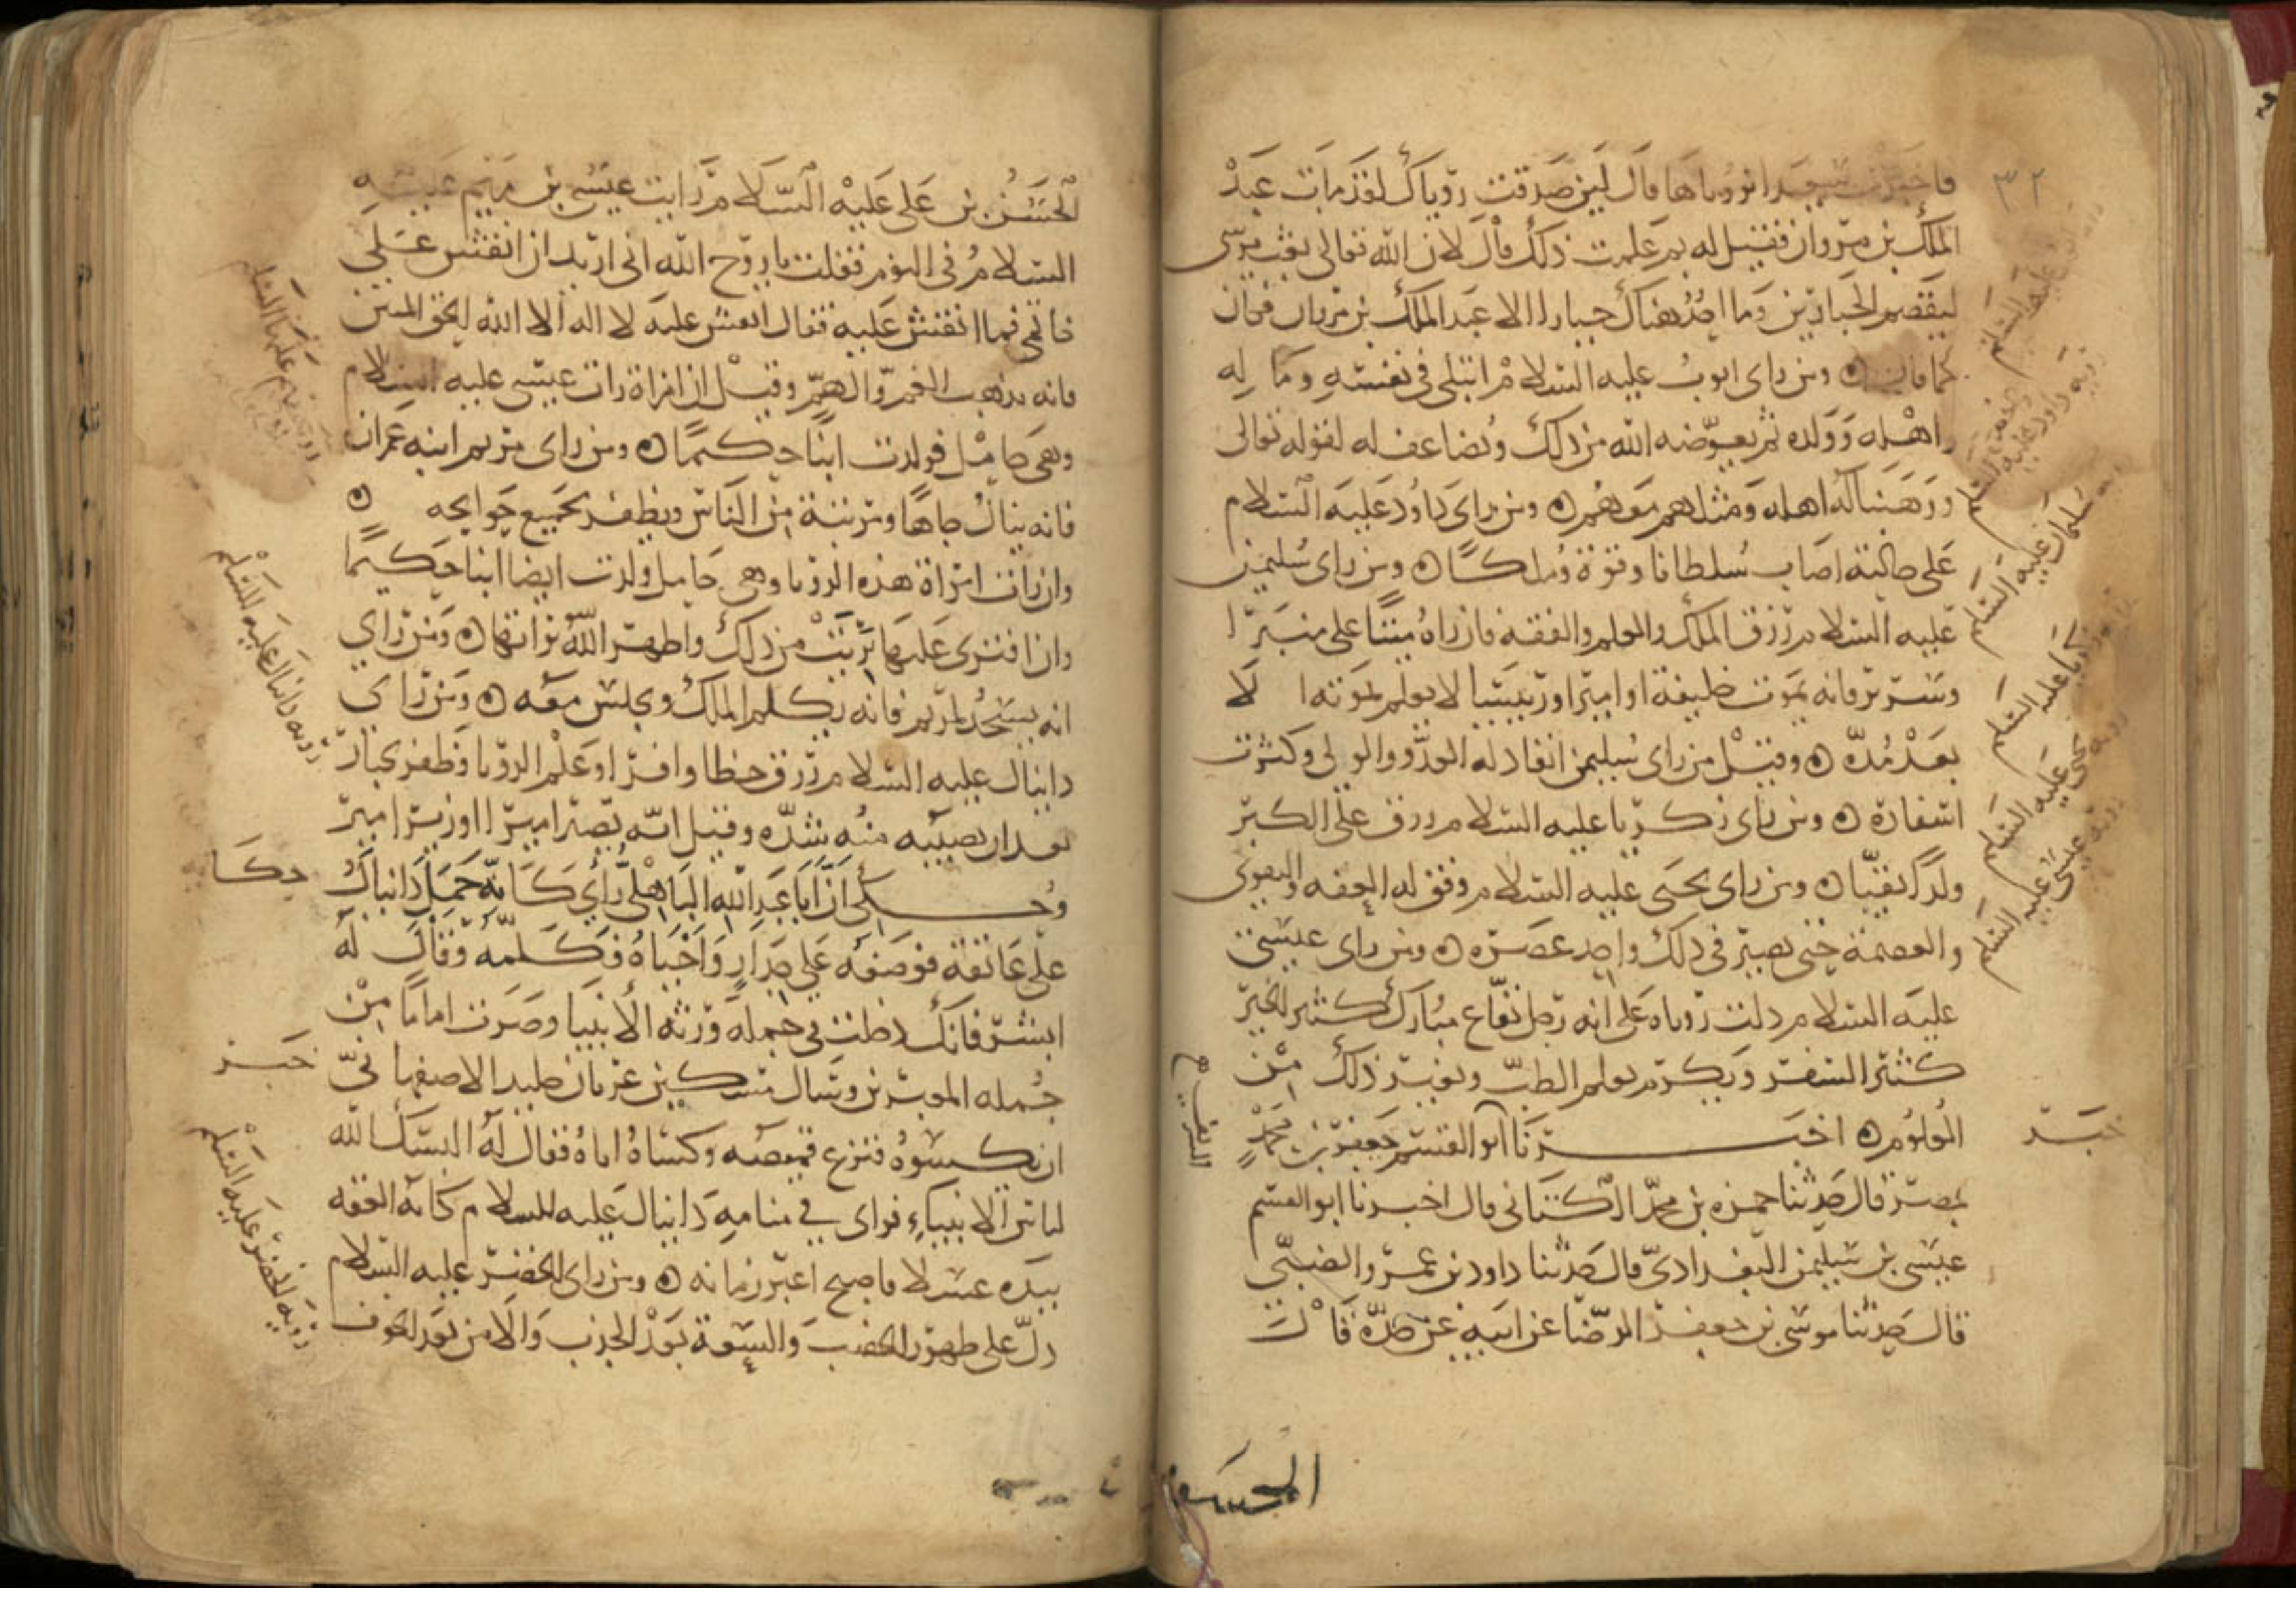 ٣٢
فاخبرت سعيدا برؤياها قال لين صدقت رؤياك لقد مات عبد
الملك بن مروان فقيل له بم علمت ذلك قال لان الله تعالى بعث موسى
ليقصم الجبارين وما اجد هناك جبارا الا عبد الملك بن مروان فكان
كما قال ن ومن راى ايوب عليه السلام ابتلى في نفسه وماله
واهله وولده ثم يعوضه الله من ذلك ويضاعف له لقوله تعالى
ووهبنا له اهله ومثلهم معهم ن ومن راى داود عليه السلام
على حالته اصاب سلطانا وقوة وملكا ن ومن راى سليمن
عليه السلام رزق الملك والعلم والفقه فان راه ميتا على منبر ا
وسرير فانه يموت خليفة او امير او رييس لا يعلم بموته الا
بعد مدة ن وقيل من راى سليمن انقاد له العدو والولي وكثرت
اسفاره ن ومن راى زكريا عليه السلام رزق على الكبر
ولدا تقيا ن ومن راى يحيى عليه السلام وفق له العفة والتقوى
والعصمة حتى يصير في ذلك واحد عصره ن ومن راى عيسى
عليه السلام دلت رؤياه على انه رجل نفاع مبارك كثير الخير
كثير السفر ويكرم بعلم الطب وبغير ذلك من
العلوم ن اخبرنا ابو القسم جعفر بن محمد
بمصر قال حدثنا حمزه بن محمد الكتاني قال اخبرنا ابو القسم
عيسى بن سليمن البغدادي قال حدثنا داود بن عمرو الضبي
قال حدثنا موسى بن جعفر الرضا عن ابيه عن جده قال
رؤيه داود عليه السلام
سليمان عليه السلام
زكريا عليه السلام
رؤيه يحيى عليه السلام
رؤيه عيسى عليه السلام
خبر
الحسن
الحسن بن علي عليه السلام رايت عيسى بن مريم عليه
السلام في النوم فقلت يا روح الله اني اريد ان انقش على
خاتمي فما انقش عليه فقال انقش عليه لا اله الا الله الحق المبين
فانه يذهب الغم والهم وقيل ان امراة رات عيسى عليه السلام
وهي حامل فولدت ابنا حكيما ن ومن راى مريم ابنه عمران
فانه ينال جاها ومرتبة من الناس ويظفر بجميع حوايجه ن
وان رات امراة هذه الرؤيا وهي حامل ولدت ايضا ابنا حكيما
وان افترى عليها برئت من ذلك واظهر الله براتها ن ومن راي
انه يسجد لمريم فانه يكلم الملك ويجلس معه ن ومن راى
دانيال عليه السلام رزق حظا وافرا وعلم الرؤيا وظفر بجبار
بعد ان يصيبه منه شدة وقيل انه يصير اميرا او وزير امير
وحكى ان ابا عبد الله الباهلي راى كانه حمل دانيال
على عاتقه فوضعه على جدار واحياه فكلمه وقال له
ابشر فانك دخلت في جملة ورثه الانبيا وصرت اماما من
جمله المعبرين وسال مسكين عريان خليد الاصفهاني
ان يكسوه فنزع قميصه وكساه اياه فقال له البسك الله
لباس الانبياء فراى في منامه دانيال عليه السلام كانه العقه
بيده عسلا فاصبح اعبر زمانه ن ومن راى الخضر عليه السلام
دل على ظهور الخصب والسعة بعد الجدب والامن بعد الخوف
رؤيه دانيال عليه السلام
حكا
خبر
رؤيه الخضر عليه السلام